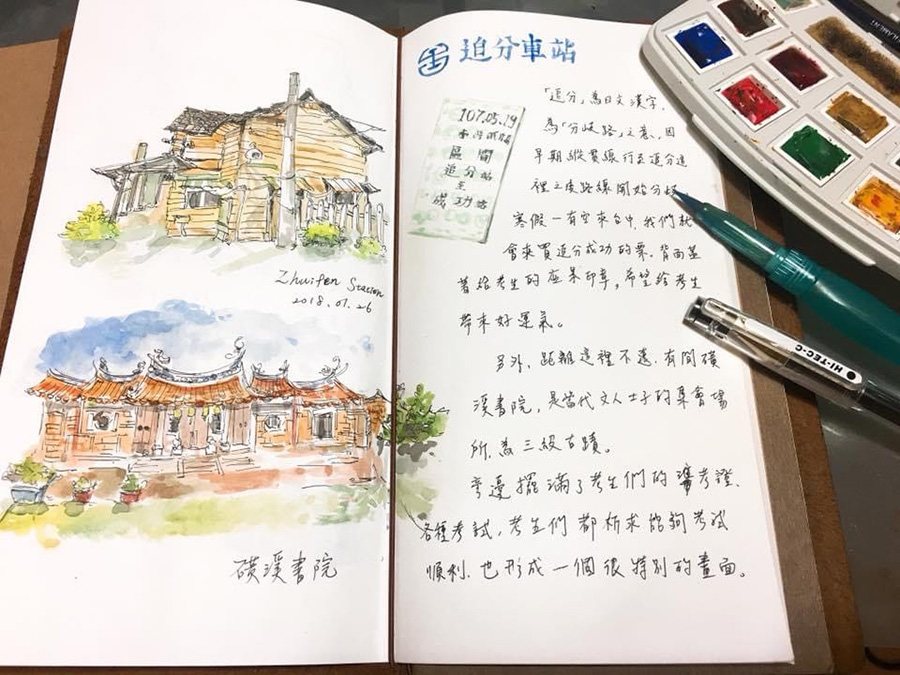 Zhuifen Station
2018.01.26
磺溪書院
追分車站
107.05.19
區間
追分站
至
成功站
「追分」為日文漢字,
為「分岐路」之意、因
早期縱貫線行至追分這
裡之後路線開始分歧。
寒假一有空來台中,我們就
會來買追分成功的票.背面蓋
著給考生的應景印章,希望給考生
帶來好運氣。
另外,距離這裡不遠.有間磺
溪書院,是當代文人士子的集會場
所.為三級古蹟。
旁邊擺滿了考生們的準考證.
各種考試,考生們都祈求能夠考試
順利.也形成一個很特別的畫面。
HI-TEC-C